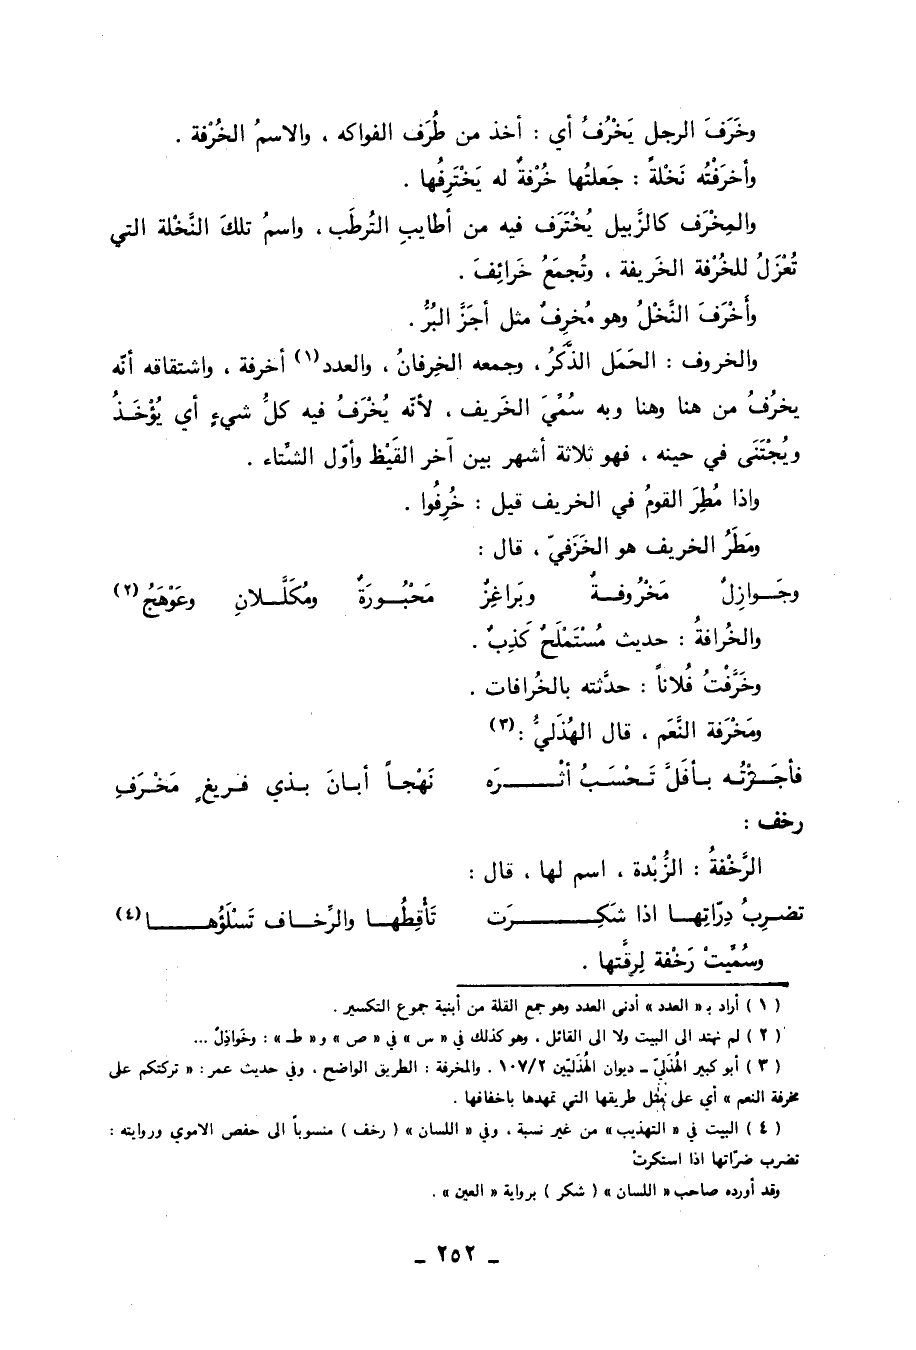 وخَرَفَ الرجل يَخْرُفُ أي : أخذ من طُرَف الفواكه ، والاسمُ الخُرْفة .
وأخرَفْتُه نَخْلةً : جَعلتُها خُرْفةً له يَخْتَرِفُها .
والمِخْرَف كالزَّبيل يُخْتَرَف فيه من أطايبِ الرُّطَب ، واسمُ تلكَ النَّخْلة التي
تُعْزَلُ للخُرْفة الخَريفة ، وتُجمَعُ خَرائِفَ .
وأَخْرَفَ النَّخْلُ وهو مُخرِفٌ مثل أجَزَّ البُرُّ .
والخروف : الحَمَل الذَّكَرُ ، وجمعه الخِرفانُ ، والعدد(١) أخرفة ، واشتقاقه أنّه
يخرُفُ من هنا وهنا وبه سُمِّيَ الخَريف ، لأنّه يُخْرَفُ فيه كلُّ شيءٍ أي يُؤْخَذُ
ويُجْتَنَى في حينه ، فهو ثلاثة أشهر بين آخر القَيْظ وأوّل الشّتاء .
واذا مُطِرَ القومُ في الخريف قيل : خُرِفُوا .
ومَطَرُ الخريف هو الخَرَفيّ ، قال :
وجَوازِلٌ مَخْرُوفةٌ وبَراغِزٌ مَحْبُورَةٌ ومُكَلَّلانِ وعَوْهَجُ(٢)
والخُرافةُ : حديث مُسْتَمْلَحٌ كَذِبٌ .
وخَرَّفْتُ فُلاناً : حدَّثته بالخُرافات .
ومَخْرَفة النَّعَم ، قال الهُذَليُّ :(٣)
فأجَزْتُه بأفَلَّ تَحْسَبُ أثْرَه نَهْجاً أبانَ بذي فريغٍ مَخْرَفِ
رخف :
الرَّخْفةُ : الزُّبْدة ، اسم لها ، قال :
تضرِبُ دِرّاتِها اذا شَكِرَت تَأْقِطُها والرِّخاف تَسْلَؤُها(٤)
وسُمِّيتْ رَخْفة لِرِقَّتها .
( ١ ) أراد بـ « العدد » أدنى العدد وهو جمع القلة من أبنية جموع التكسير .
( ٢ ) لم نهتد الى البيت ولا الى القائل ، وهو كذلك في « س » في « ص » و « ط » : وخَواذِلٌ ...
( ٣ ) أبو كبير الهُذَليّ ـ ديوان الهُذَليّين ١٠٧/٢ . والمخرفة : الطريق الواضح . وفي حديث عمر : « تركتكم على
مخرفة النعم » أي على مِثل طريقها التي تمهدها باخفافها .
( ٤ ) البيت في « التهذيب » من غير نسبة ، وفي « اللسان » ( رخف ) منسوباً الى حفص الاموي وروايته :
تضرب ضرّاتها اذا استكرتْ
وقد أورده صاحب « اللسان » ( شكر ) برواية « العين » .
ـ ٢٥٢ ـ